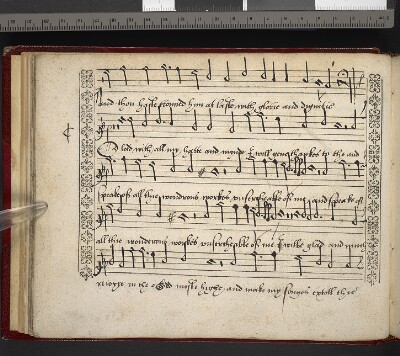 and thou haste crouned him at laste with glorie and dignitie
O lod with all my harte and mynde I will geve thankes to the and
speake of all thie wonderous workes unsercheable of me, and speake of
all thie wonderous workes unsercheable of me I will be glad and much
reioyce in the o God moste highe and make my songes extoll thye